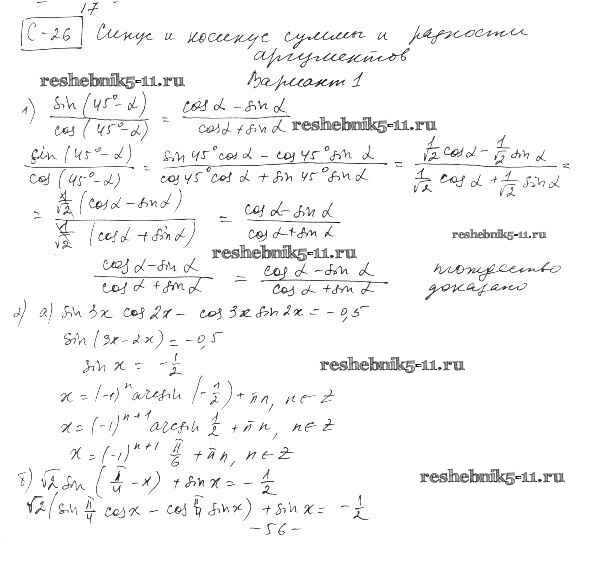 17
С-26 Синус и косинус суммы и разности
аргументов
reshebnik5-11.ru Вариант 1
1) sin(45°-α)/cos(45°-α) = (cosα - sinα)/(cosα + sinα) reshebnik5-11.ru
sin(45°-α)/cos(45°-α) = (sin45°cosα - cos45°sinα)/(cos45°cosα + sin45°sinα) = (1/√2 cosα - 1/√2 sinα)/(1/√2 cosα + 1/√2 sinα) =
= (1/√2 (cosα - sinα))/(1/√2 (cosα + sinα)) = (cosα - sinα)/(cosα + sinα) reshebnik5-11.ru
reshebnik5-11.ru
(cosα - sinα)/(cosα + sinα) = (cosα - sinα)/(cosα + sinα) тождество
доказано
2) а) sin3x cos2x - cos3x sin2x = -0,5
sin(3x-2x) = -0,5
sin x = -1/2 reshebnik5-11.ru
x = (-1)ⁿ arcsin(-1/2) + πn, n∈Z
x = (-1)ⁿ⁺¹ arcsin 1/2 + πn, n∈Z
x = (-1)ⁿ⁺¹ π/6 + πn, n∈Z
б) √2 sin(π/4 - x) + sinx = -1/2 reshebnik5-11.ru
√2(sin π/4 cosx - cos π/4 sinx) + sinx = -1/2
-56-